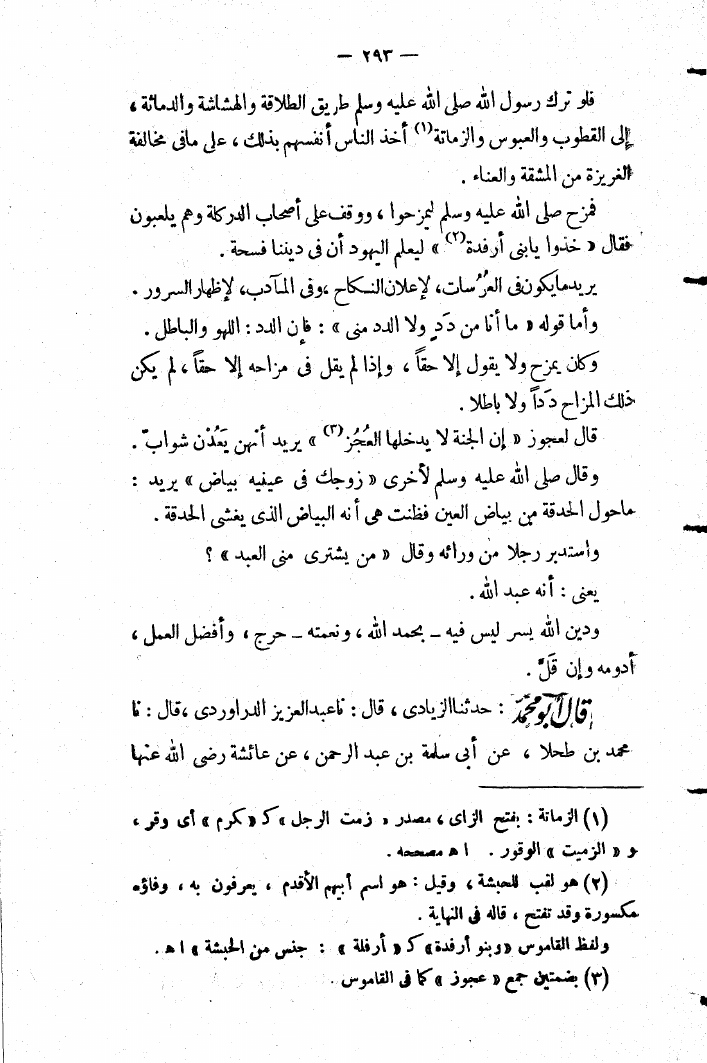 — ٢٩٣ —
فلو ترك رسول الله صلى الله عليه وسلم طريق الطلاقة والهشاشة والدماثة ،
إلى القطوب والعبوس والزماتة(١) أخذ الناس أنفسهم بذلك ، على مافى مخالفة
الغريزة من المشقة والعناء .
فمزح صلى الله عليه وسلم ليمزحوا ، ووقف على أصحاب الدركلة وهم يلعبون
فقال « خذوا يابنى أرفدة(٢) » ليعلم اليهود أن فى ديننا فسحة .
يريد مايكون فى العُرُسات، لإعلان النكاح ،وفى المآدب، لإظهار السرور .
وأما قوله « ما أنا من دَدٍ ولا الدد منى » : فإن الدد : اللهو والباطل .
وكان يمزح ولا يقول إلا حقاً ، وإذا لم يقل فى مزاحه إلا حقاً ، لم يكن
ذلك المزاح دَداً ولا باطلا .
قال لعجوز « إن الجنة لا يدخلها العُجُز(٣) » يريد أنهن يَعُدْن شوابّ .
وقال صلى الله عليه وسلم لأخرى « زوجك فى عينيه بياض » يريد :
ماحول الحدقة من بياض العين فظنت هى أنه البياض الذى يغشى الحدقة .
واستدبر رجلا من ورائه وقال « من يشترى منى العبد » ؟
يعنى : أنه عبد الله .
ودين الله يسر ليس فيه – بحمد الله ، ونعمته – حرج ، وأفضل العمل ،
أدومه وإن قلّ .
قال أبو محمد : حدثنا الزيادى ، قال : نا عبد العزيز الدراوردى ،قال : نا
محمد بن طحلا ، عن أبى سلمة بن عبد الرحمن ، عن عائشة رضى الله عنها
(١) الزماتة : بفتح الزاى ، مصدر « زمت الرجل » كـ « كرم » أى وقر ،
و « الزميت » الوقور . ا هـ مصححه .
(٢) هو لقب للحبشة ، وقيل : هو اسم أبيهم الأقدم ، يعرفون به ، وفاؤه
مكسورة وقد تفتح ، قاله فى النهاية .
ولفظ القاموس «وبنو أرفدة» كـ « أرفلة » : جنس من الحبشة » ا هـ .
(٣) بضمتين جمع « عجوز » كما فى القاموس .